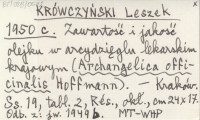 KRÓWCZYŃSKI Leszek
1950 c. Zawartość i jakość
olejku w arcydzięglu lekarskim
krajowym (Archangelica offi-
cinalis Hoffmann). — Kraków.
Ss. 19, tabl. 2, Rés., okł., cm 24x17.
Odb. z: jw. 1949 b. MT-WHP